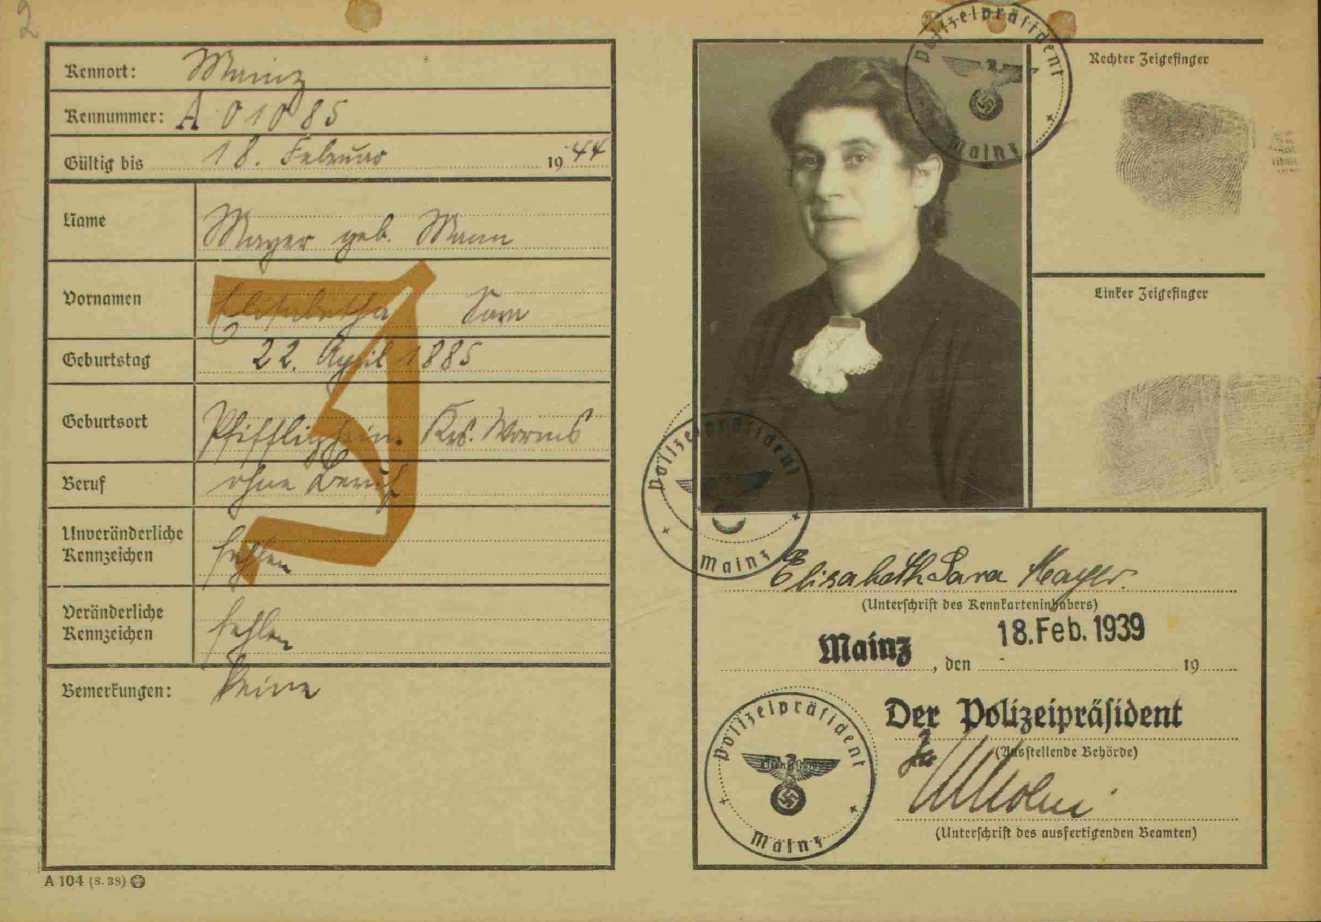 2
Kennort: Mainz
Kennnummer: A 01085
Gültig bis 18. Februar 1944
Name Mayer geb. Mann
Vornamen Elisabetha Sara
Geburtstag 22. April 1885
Geburtsort Pfiffligheim Krs. Worms
Beruf ohne Beruf
Unveränderliche
Kennzeichen fehlen
Veränderliche
Kennzeichen fehlen
Bemerkungen: keine
J
A 104 (8. 38)
Polizeipräsident
Mainz
Rechter Zeigefinger
Linker Zeigefinger
Polizeipräsident
Mainz
Elisabeth Sara Mayer.
(Unterschrift des Kennkarteninhabers)
Mainz, den 18. Feb. 1939 19
Der Polizeipräsident
(Ausstellende Behörde)
Polizeipräsident
Mainz
(Unterschrift des ausfertigenden Beamten)